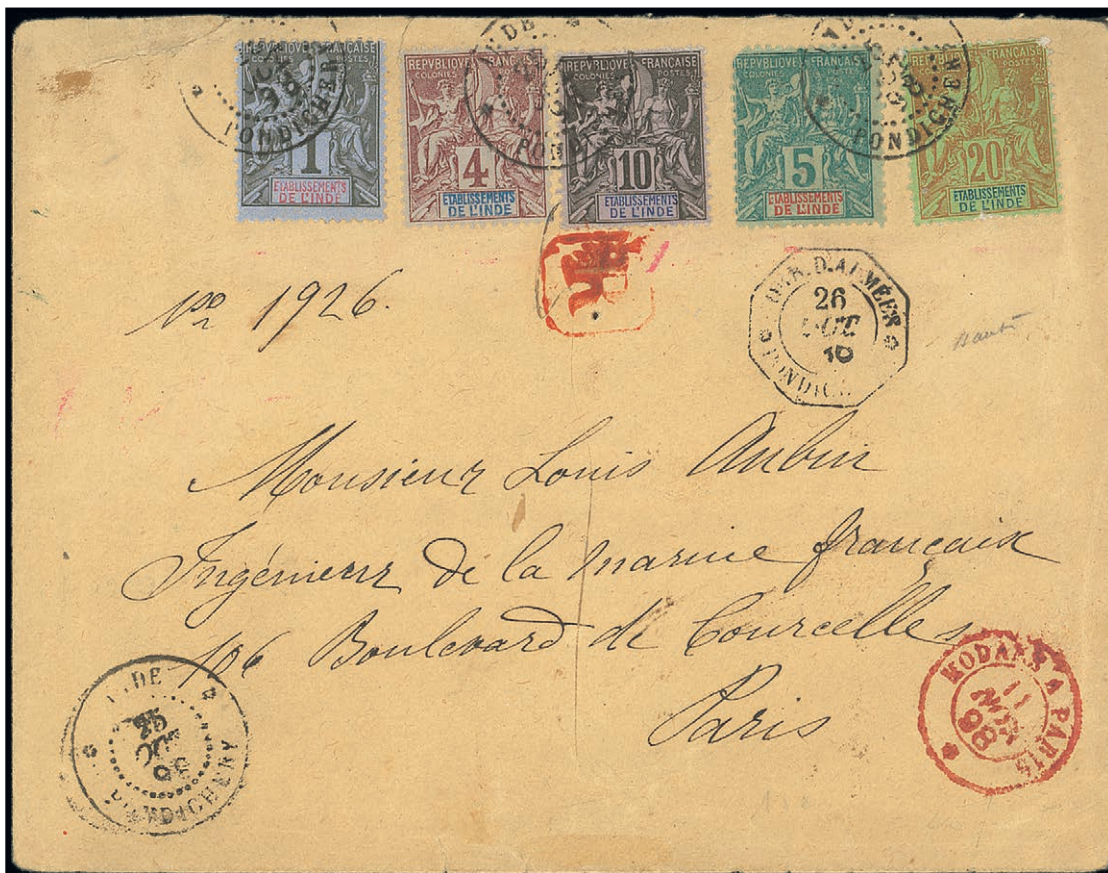 INDE
PONDICHERY
REPVBLIQVE FRANÇAISE
COLONIES POSTES
1
ETABLISSEMENTS
DE L'INDE
REPVBLIQVE FRANÇAISE
COLONIES POSTES
4
ETABLISSEMENTS
DE L'INDE
REPVBLIQVE FRANÇAISE
COLONIES POSTES
10
ETABLISSEMENTS
DE L'INDE
REPVBLIQVE FRANÇAISE
COLONIES POSTES
5
ETABLISSEMENTS
DE L'INDE
PONDICHERY
REPVBLIQVE FRANÇAISE
COLONIES POSTES
20
ETABLISSEMENTS
DE L'INDE
R
No 1926.
COR. D. ARMÉES
26
OCT
PONDICH
Monsieur Louis Aubin
Ingénieur de la marine française
106 Boulevard de Courcelles
Paris
INDE
25
OCT
98
PONDICHERY
MODANE A PARIS
11
98